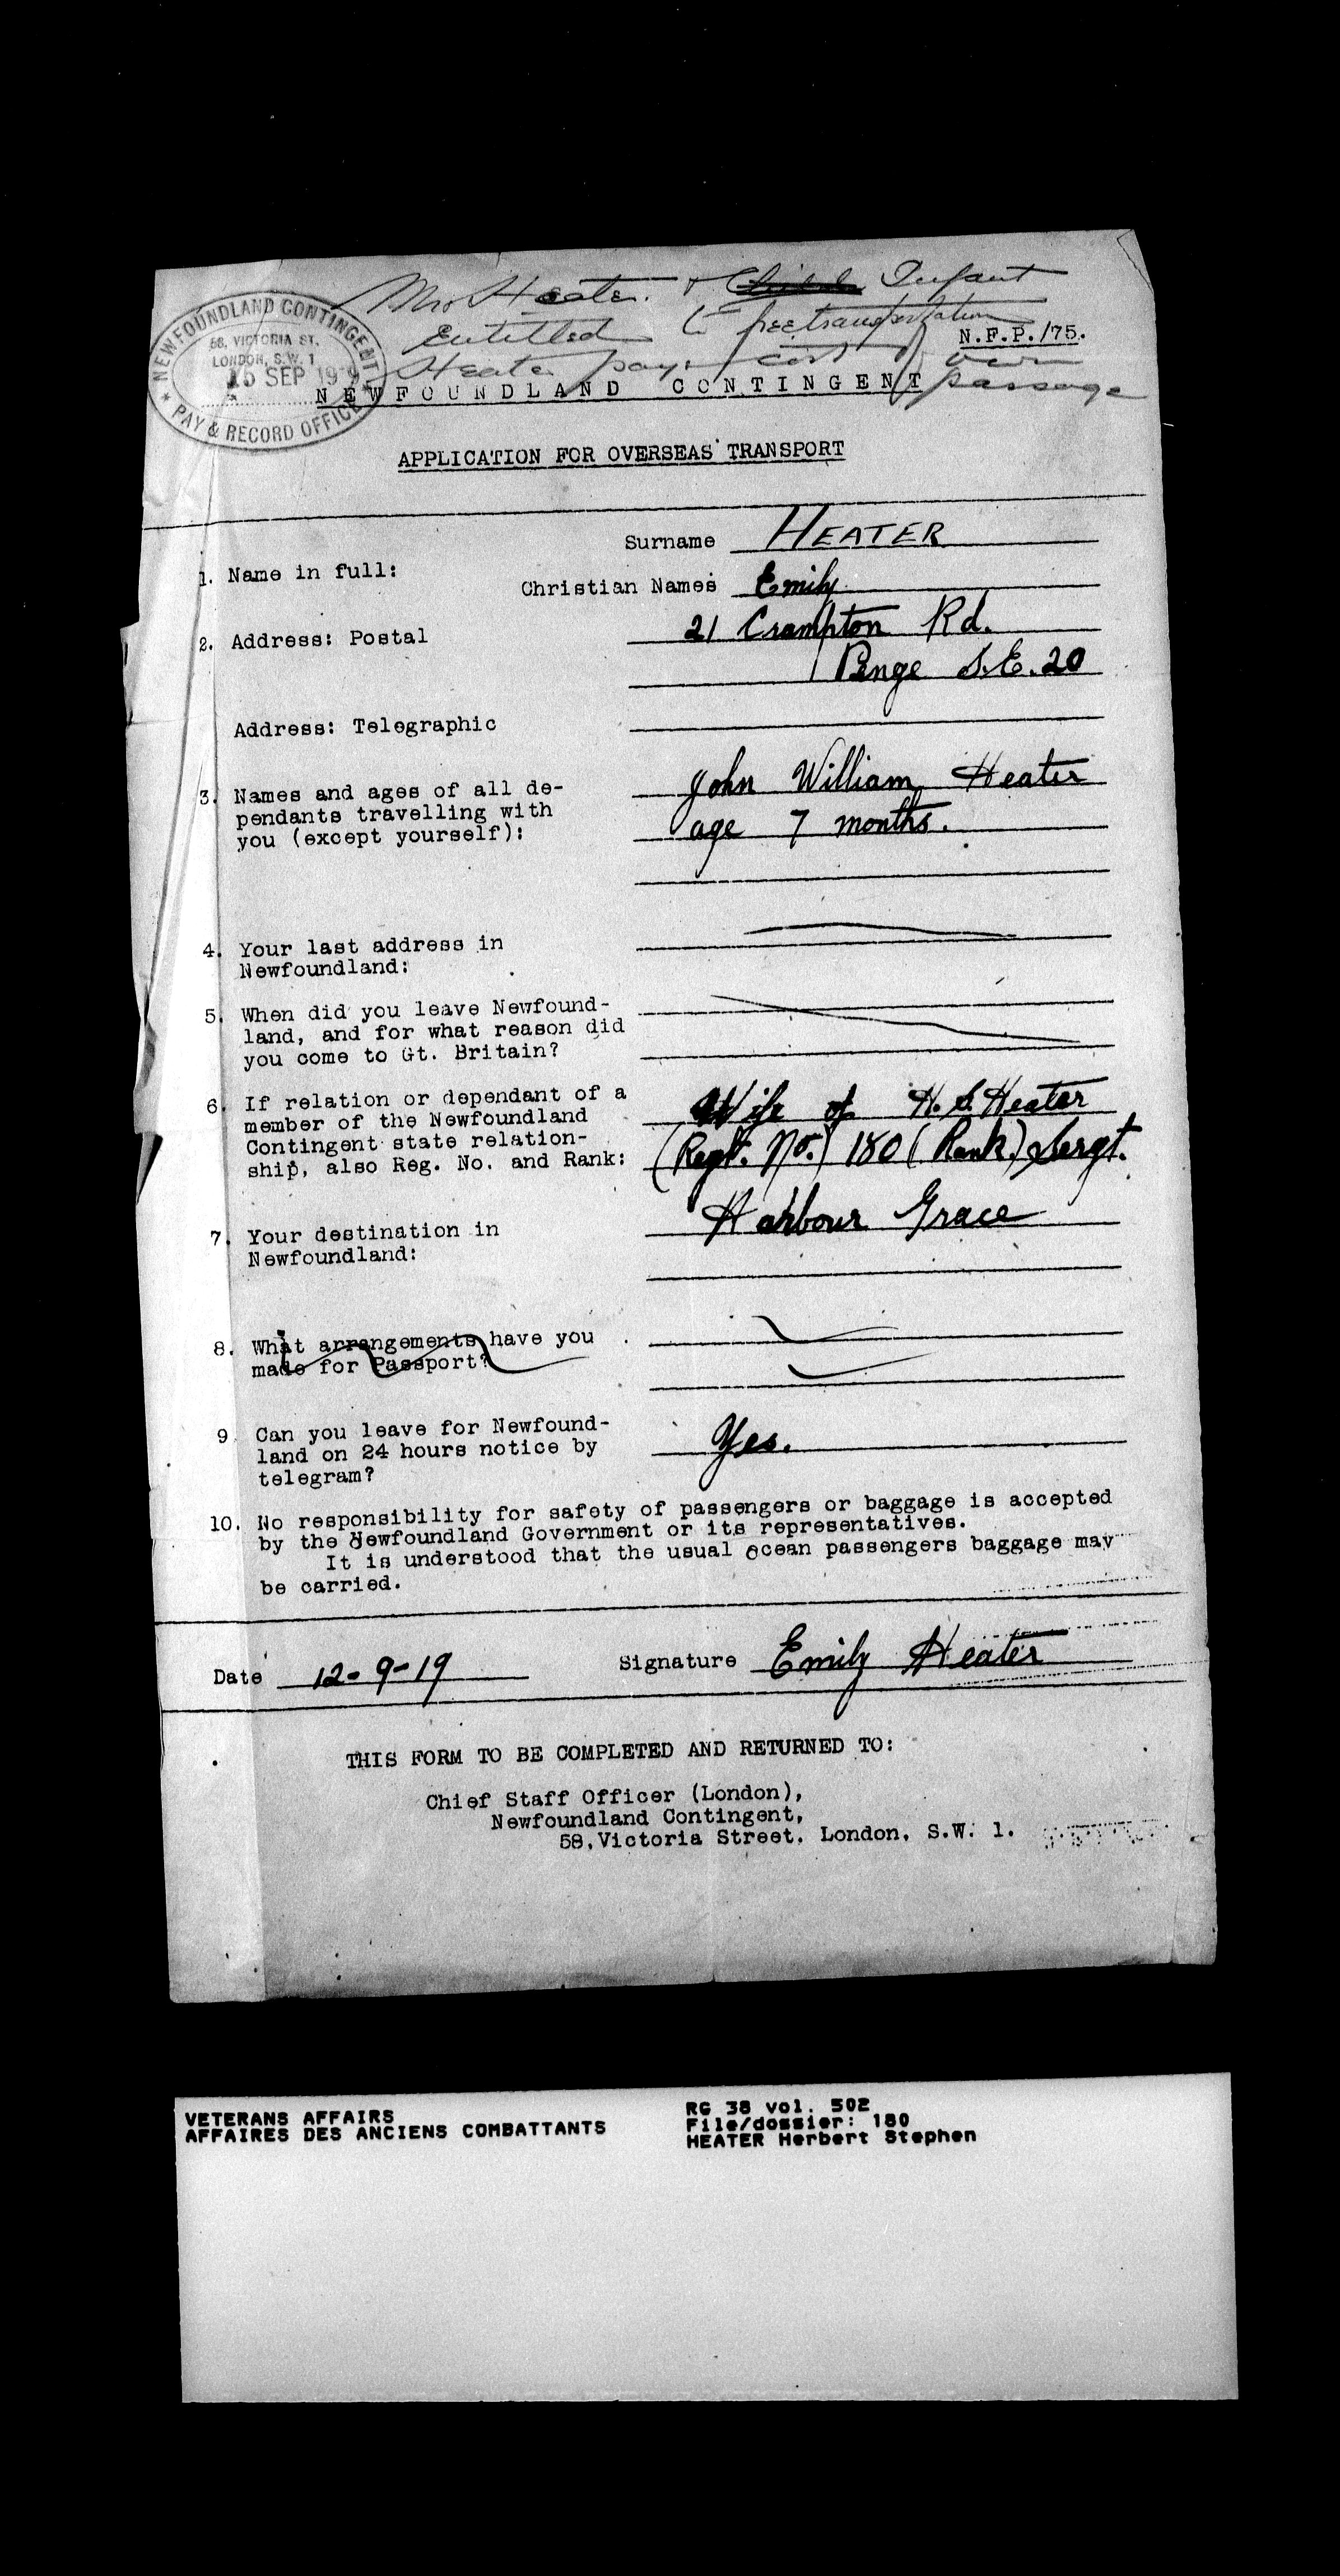 Mrs Heater. & Child Infant
entitled to free transportation
Heater pays cost of own
passage
NEWFOUNDLAND CONTINGENT
58, VICTORIA ST.
LONDON, S.W. 1
15 SEP 1919
PAY & RECORD OFFICE
N.F.P./75.
NEWFOUNDLAND CONTINGENT
APPLICATION FOR OVERSEAS TRANSPORT
Surname HEATER
1. Name in full:
Christian Names Emily
2. Address: Postal 21 Crampton Rd.
Penge S.E.20
Address: Telegraphic
3. Names and ages of all de- John William Heater
pendants travelling with age 7 months.
you (except yourself):
4. Your last address in
Newfoundland:
5. When did you leave Newfound-
land, and for what reason did
you come to Gt. Britain?
6. If relation or dependant of a Wife of H.S. Heater
member of the Newfoundland
Contingent state relation- (Regt. No.) 180 (Rank.) Sergt.
ship, also Reg. No. and Rank:
7. Your destination in Harbour Grace
Newfoundland:
8. What arrangements have you
made for Passport?
9. Can you leave for Newfound- Yes.
land on 24 hours notice by
telegram?
10. No responsibility for safety of passengers or baggage is accepted
by the Newfoundland Government or its representatives.
It is understood that the usual ocean passengers baggage may
be carried.
Date 12-9-19 Signature Emily Heater
THIS FORM TO BE COMPLETED AND RETURNED TO:
Chief Staff Officer (London),
Newfoundland Contingent,
58, Victoria Street. London, S.W. 1.
VETERANS AFFAIRS
AFFAIRES DES ANCIENS COMBATTANTS
RG 38 vol. 502
File/dossier: 180
HEATER Herbert Stephen